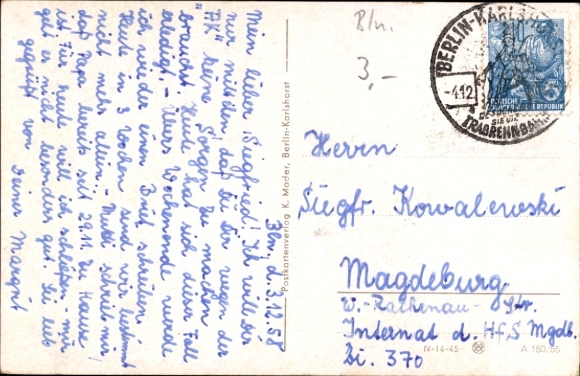 Bln. d. 3.12.58
Mein lieber Siegfried! Ich will Dir
nur mitteilen, daß Du Dir wegen der
"AK" keine Sorgen zu machen
brauchst. Heute hat sich dieser Fall
erledigt. – Übers Wochenende werde
ich wieder einen Brief schreiben.
Heute in 3 Wochen sind wir bestimmt
nicht mehr allein. – Mutti schrieb mir,
daß Papa bereits seit 29.11. zu Hause
ist. Für heute will ich schließen – mir
geht es nicht besonders gut. Sei lieb
gegrüßt von
Deiner Margrit
Postkartenverlag K. Mader, Berlin-Karlshorst
Bln.
3,-
BERLIN-KARLSHORST
-4.12.
BESUCHEN
SIE DIE
TRABRENNBAHN
DEUTSCHE
DEMOKRATISCHE REPUBLIK
Herrn
Siegfr. Kowalewski
Magdeburg
W.-Rathenau-Str.
Internat d. HfS Mgdb.
Zi. 370
IV-14-45
A 150/55